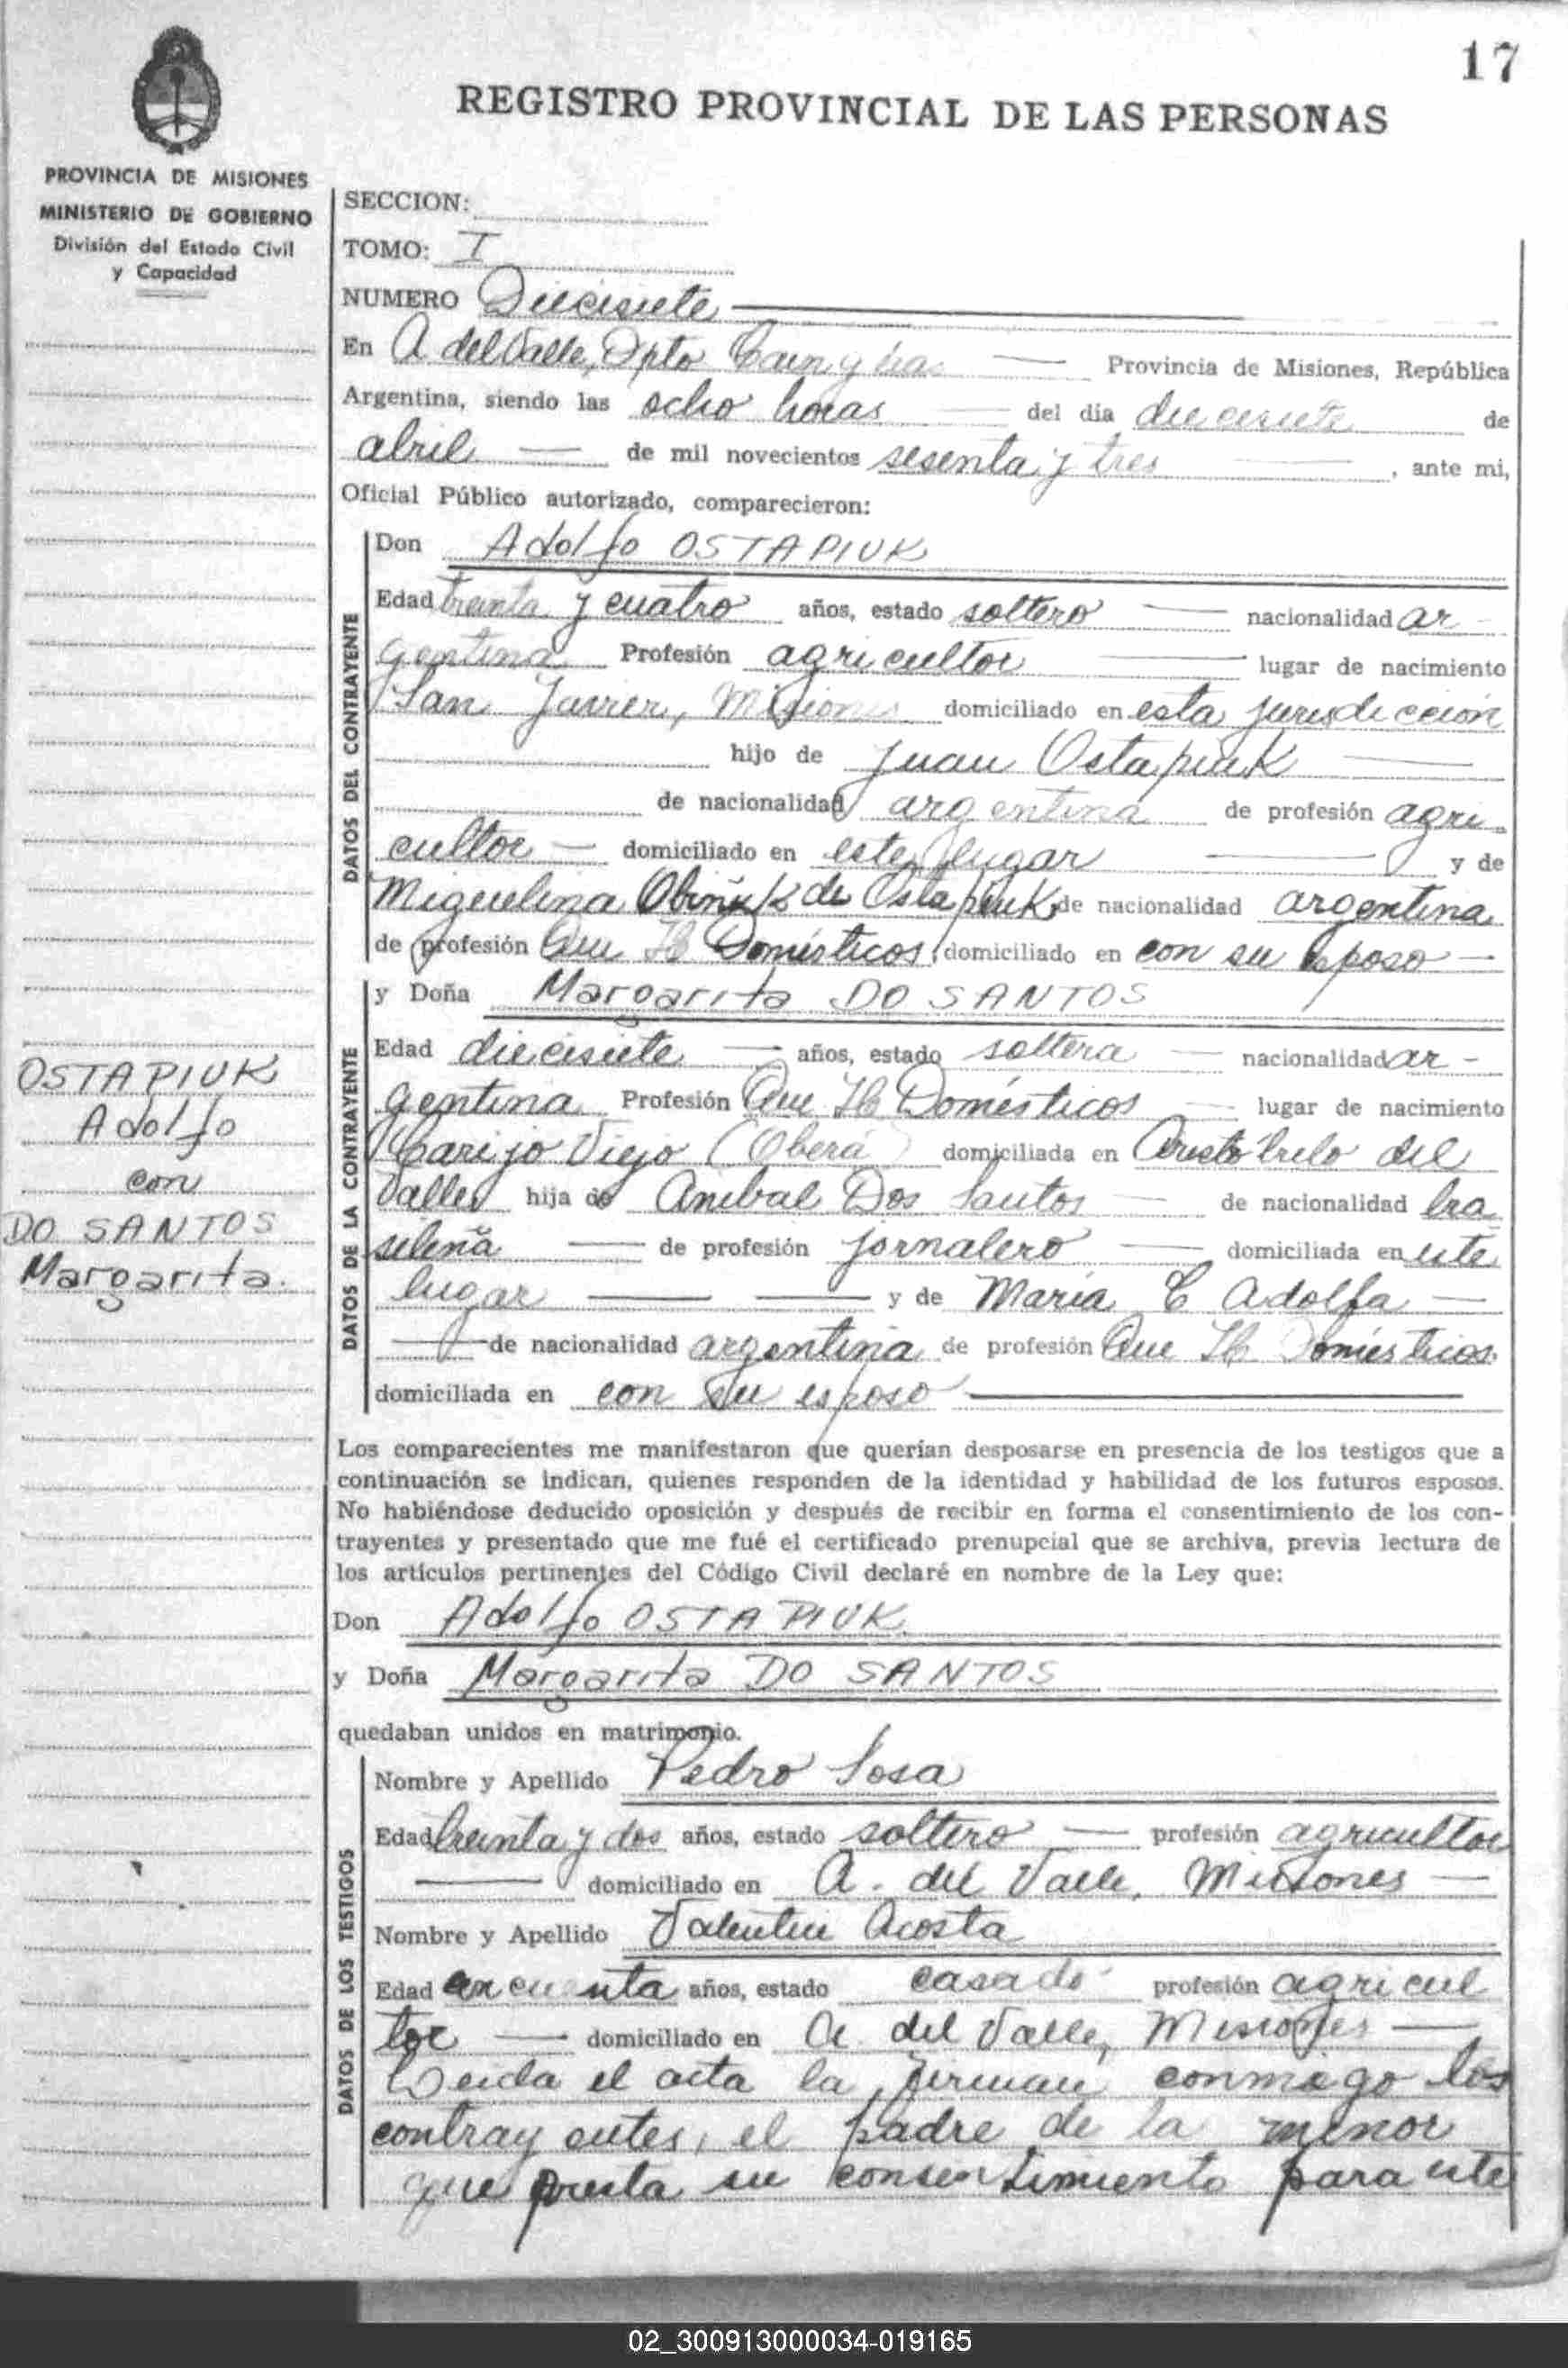 17
REGISTRO PROVINCIAL DE LAS PERSONAS
PROVINCIA DE MISIONES
MINISTERIO DE GOBIERNO
División del Estado Civil
y Capacidad
SECCION:
TOMO: I
NUMERO Diecisiete
En A del Valle, Dpto Provincia de Misiones, República
Argentina, siendo las ocho horas del dia diecisiete de
abril de mil novecientos sesenta y tres, ante mi,
Oficial Público autorizado, comparecieron:
DATOS DEL CONTRAYENTE
Don Adolfo OSTAPIUK
Edad treinta y cuatro años, estado soltero nacionalidad ar-
gentina Profesión agricultor lugar de nacimiento
San Javier, Misiones domiciliado en esta jurisdiccion
hijo de Juan Ostapiuk
de nacionalidad argentina de profesión agri-
cultor domiciliado en este lugar y de
Miguelina de Ostapiuk de nacionalidad argentina
de profesión Que Hs Domésticos, domiciliado en con su esposo
DATOS DE LA CONTRAYENTE
y Doña Margarita DO SANTOS
Edad diecisiete años, estado soltera nacionalidad ar-
gentina Profesión Que Hs Domésticos lugar de nacimiento
Carijo Viejo (Oberá) domiciliada en Aristóbulo del
Valle hija de Anibal Dos Santos de nacionalidad bra
sileña de profesión jornalero domiciliada en este
lugar y de María C Adolfa
de nacionalidad argentina de profesión Que Hs Domésticos
domiciliada en con su esposo
OSTAPIUK
Adolfo
con
DO SANTOS
Margarita.
Los comparecientes me manifestaron que querían desposarse en presencia de los testigos que a
continuación se indican, quienes responden de la identidad y habilidad de los futuros esposos.
No habiéndose deducido oposición y después de recibir en forma el consentimiento de los con-
trayentes y presentado que me fué el certificado prenupcial que se archiva, previa lectura de
los artículos pertinentes del Código Civil declaré en nombre de la Ley que:
Don Adolfo OSTAPIUK
y Doña Margarita DO SANTOS
quedaban unidos en matrimonio.
DATOS DE LOS TESTIGOS
Nombre y Apellido Pedro Sosa
Edad treinta y dos años, estado soltero profesión agricultor
domiciliado en A. del Valle, Misiones
Nombre y Apellido Valentin Acosta
Edad cincuenta años, estado casado profesión agricul
tor domiciliado en A. del Valle, Misiones
Leida el acta la firman conmigo los
contrayentes, el padre de la menor
que presta su consentimiento para este
02_300913000034-019165